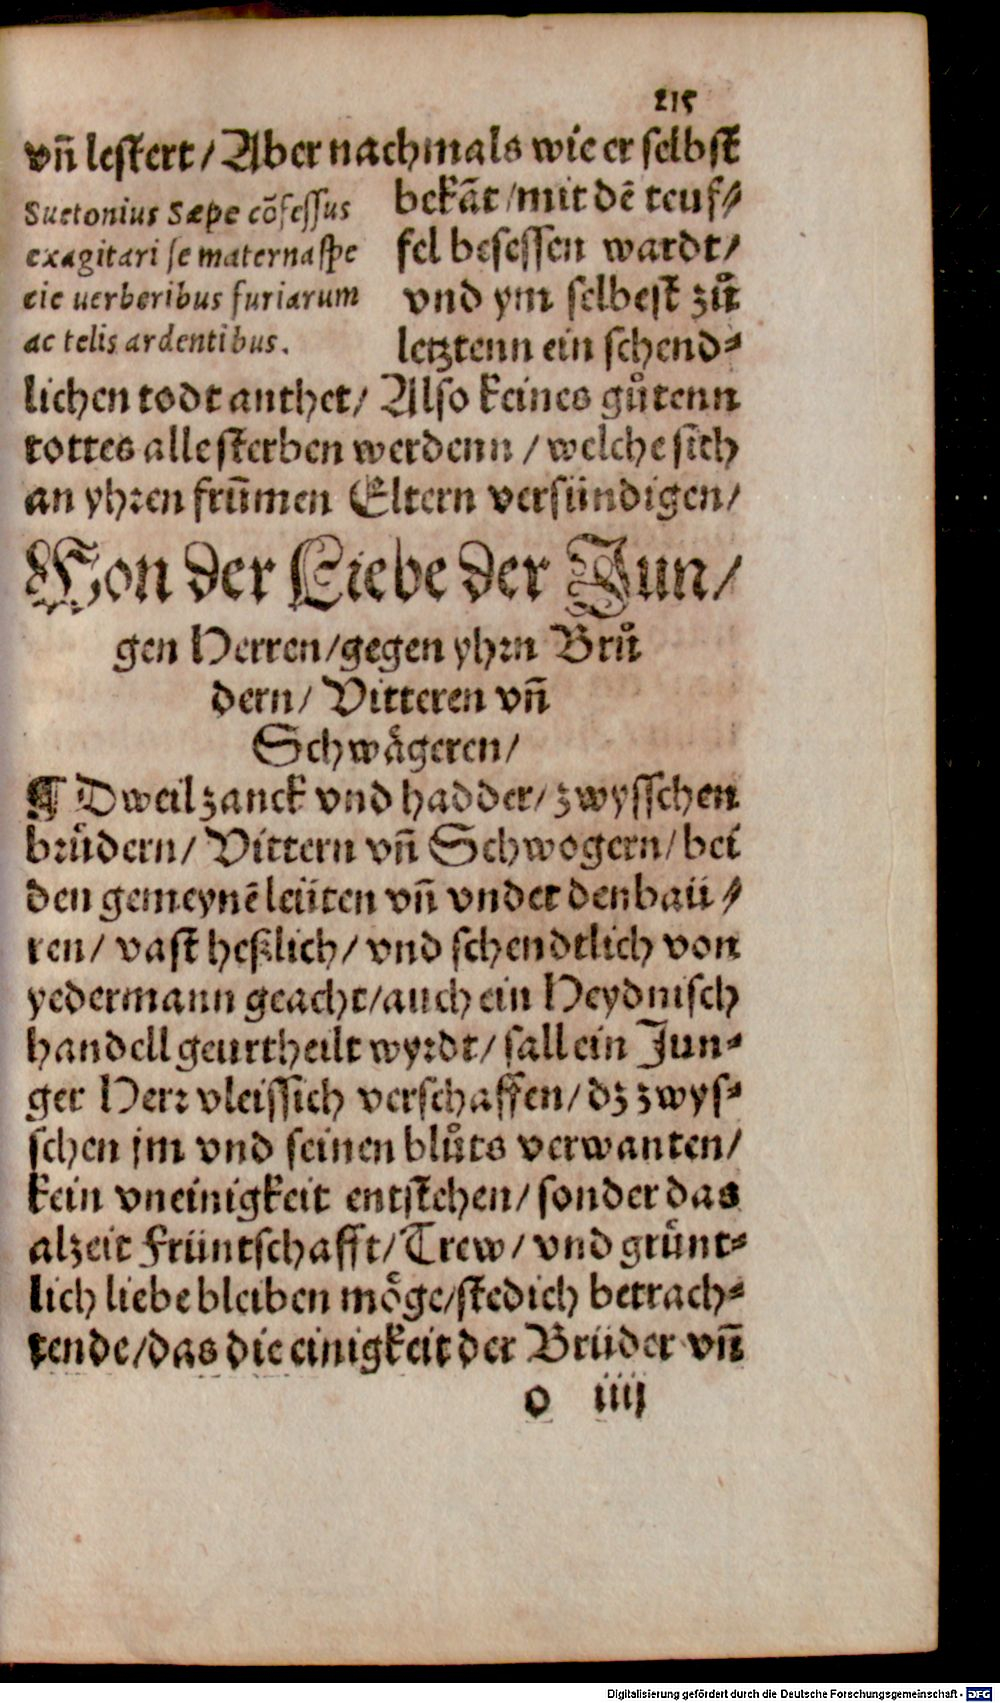 215
vñ lestert / Aber nachmals wie er selbst
Suetonius Sæpe cõfessus
exagitari se materna spe
cie uerberibus furiarum
ac telis ardentibus.
bekãt / mit dẽ teuf⸗
fel besessen wardt /
vnd ym selbest zů
letztenn ein schend⸗
lichen todt anthet / Also keines gůtenn
tottes alle sterben werdenn / welche sich
an yhren frũmen Eltern versündigen /
Von der Liebe der Jun /
gen Herren / gegen yhrn Brů
dern / Vitteren vñ
Schwägeren /
¶ Dweil zanck vnd hadder / zwysschen
brüdern / Vittern vñ Schwogern / bei
den gemeynẽ leüten vñ vnder den baü⸗
ren / vast heßlich / vnd schendtlich von
yedermann geacht / auch ein Heydnisch
handell geurtheilt wyrdt / sall ein Jun⸗
ger Herr vleissich verschaffen / dz zwys⸗
schen jm vnd seinen blůts verwanten /
kein vneinigkeit entstehen / sonder das
alzeit Früntschafft / Trew / vnd grünt⸗
lich liebe bleiben möge / stedich betrach⸗
tende / das die einigkeit der Brüder vñ
o iiij
Digitalisierung gefördert durch die Deutsche Forschungsgemeinschaft - DFG